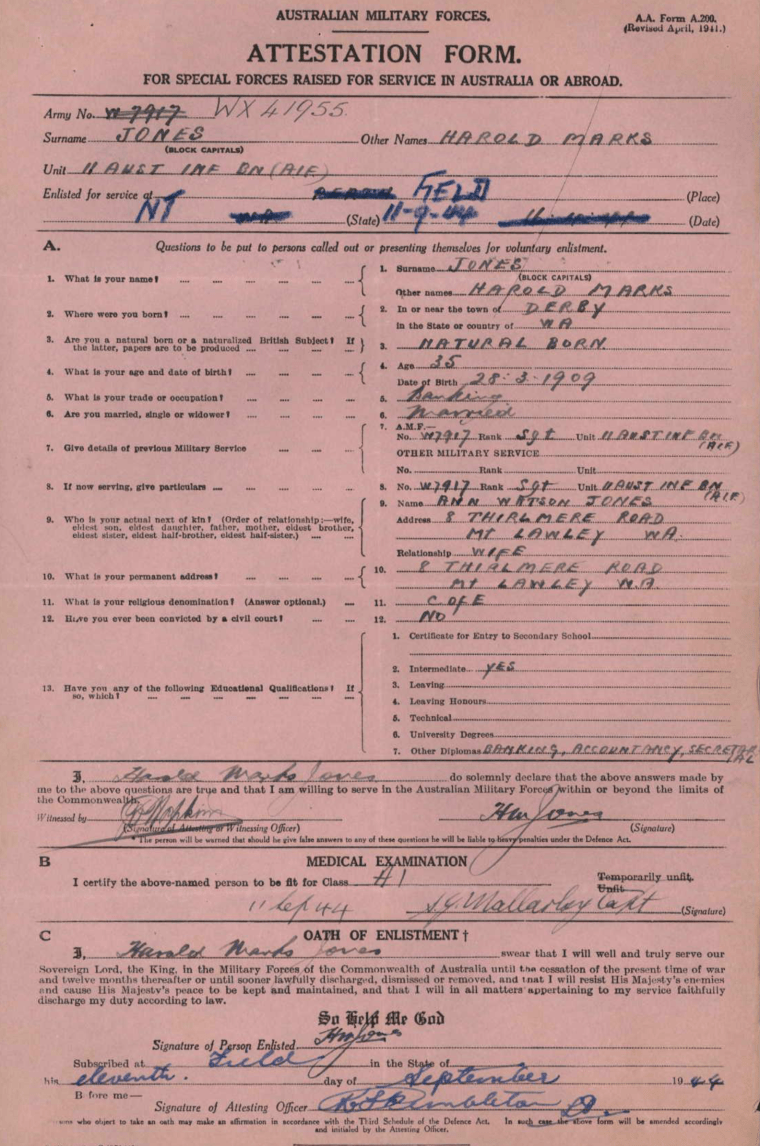 AUSTRALIAN MILITARY FORCES.
A.A. Form A.200.
(Revised April, 1941.)
ATTESTATION FORM.
FOR SPECIAL FORCES RAISED FOR SERVICE IN AUSTRALIA OR ABROAD.
Army No. W7917 WX41955.
Surname JONES Other Names HAROLD MARKS
(BLOCK CAPITALS)
Unit 11 AUST INF BN (AIF)
Enlisted for service at FIELD (Place)
NT WA (State) 11-9-44 (Date)
A. Questions to be put to persons called out or presenting themselves for voluntary enlistment.
1. What is your name? .... 1. Surname JONES
(BLOCK CAPITALS)
Other names HAROLD MARKS
2. Where were you born? .... 2. In or near the town of DERBY
in the State or country of WA
3. Are you a natural born or a naturalized British Subject? If the latter, papers are to be produced .... 3. NATURAL BORN
4. What is your age and date of birth? .... 4. Age 35
Date of Birth 28-3-1909
5. What is your trade or occupation? .... 5. Banking
6. Are you married, single or widower? .... 6. Married
7. Give details of previous Military Service .... 7. A.M.F.—
No. W7917 Rank Sgt Unit 11 AUST INF BN (AIF)
OTHER MILITARY SERVICE
No. Rank Unit
8. If now serving, give particulars .... 8. No. W7917 Rank Sgt Unit 11 AUST INF BN (AIF)
9. Who is your actual next of kin? (Order of relationship:—wife, eldest son, eldest daughter, father, mother, eldest brother, eldest sister, eldest half-brother, eldest half-sister.) .... 9. Name ANN WATSON JONES
Address 8 THIRLMERE ROAD
MT LAWLEY WA.
Relationship WIFE
10. What is your permanent address? .... 10. 8 THIRLMERE ROAD
MT LAWLEY W.A.
11. What is your religious denomination? (Answer optional.) .... 11. C OF E
12. Have you ever been convicted by a civil court? .... 12. NO
13. Have you any of the following Educational Qualifications? If so, which? ....
1. Certificate for Entry to Secondary School
2. Intermediate YES
3. Leaving
4. Leaving Honours
5. Technical
6. University Degrees
7. Other Diplomas BANKING, ACCOUNTANCY, SECRETARIAL
I, Harold Marks Jones do solemnly declare that the above answers made by
me to the above questions are true and that I am willing to serve in the Australian Military Forces within or beyond the limits of
the Commonwealth.
Witnessed by HM Jones
(Signature of Attesting or Witnessing Officer) (Signature)
* The person will be warned that should he give false answers to any of these questions he will be liable to heavy penalties under the Defence Act.
B MEDICAL EXAMINATION
I certify the above-named person to be fit for Class A1 Temporarily unfit.
Unfit.
11 Sep 44 Capt (Signature)
C OATH OF ENLISTMENT †
I, Harold Marks Jones swear that I will well and truly serve our
Sovereign Lord, the King, in the Military Forces of the Commonwealth of Australia until the cessation of the present time of war
and twelve months thereafter or until sooner lawfully discharged, dismissed or removed, and that I will resist His Majesty's enemies
and cause His Majesty's peace to be kept and maintained, and that I will in all matters appertaining to my service faithfully
discharge my duty according to law.
So Help Me God
Signature of Person Enlisted HM Jones
Subscribed at Field in the State of
his eleventh. day of September 1944
Before me—
Signature of Attesting Officer
sons who object to take an oath may make an affirmation in accordance with the Third Schedule of the Defence Act. In such case the above form will be amended accordingly
and initialed by the Attesting Officer.